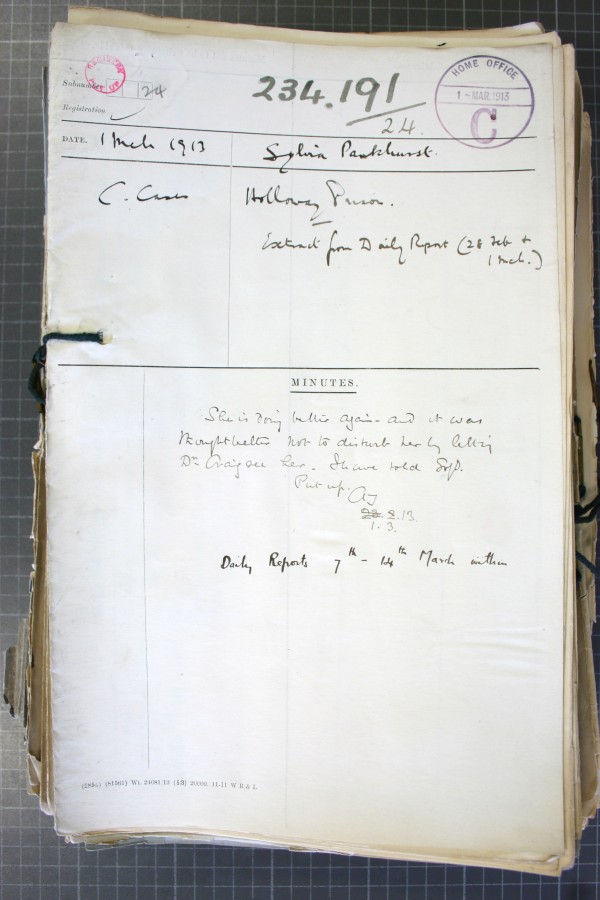 Subnumber 24
Registration
234.191
24.
HOME OFFICE
1 - MAR. 1913
C
DATE. 1 Mch 1913
Sylvia Pankhurst.
C. Cases
Holloway Prison.
Extract from Daily Report (28 Feb &
1 Mch.)
MINUTES.
She is doing better again - and it was
thought better not to disturb her by letting
Dr. Craig see her - I have told
Put up.
1. 3.
Daily Reports 7th - 14th March within